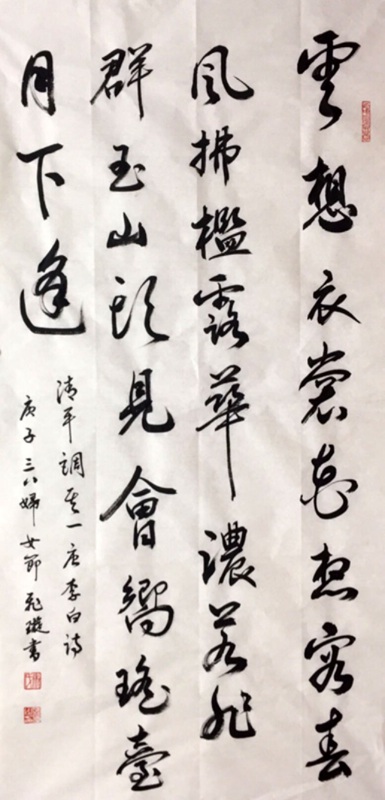 雲想衣裳花想容春
風拂檻露華濃若非
群玉山頭見會嚮瑤臺
月下逢
清平調其一唐李白詩
庚子三八婦女節 璇書